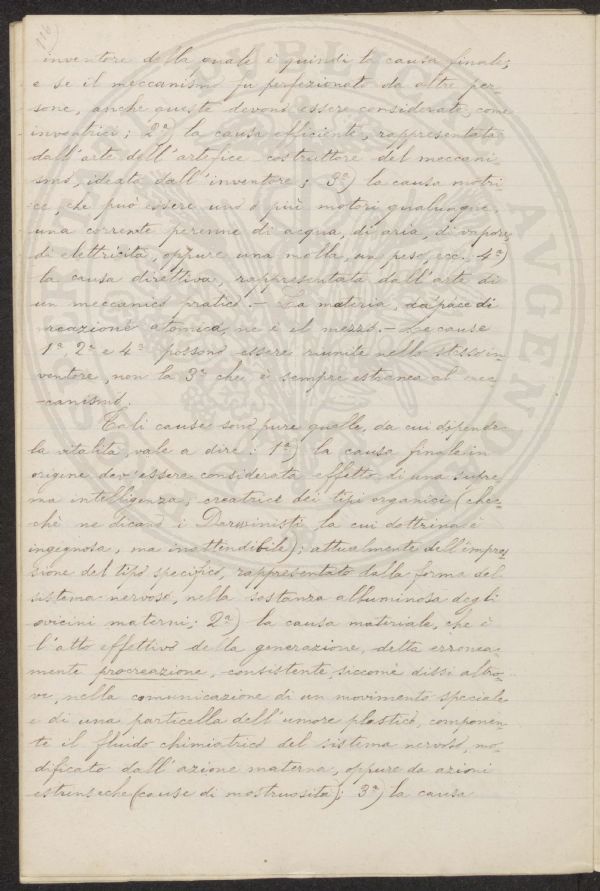 116
inventore della quale è quindi la causa finale;
e se il meccanismo fu perfezionato da altre per-
sone, anche queste devono essere considerate come
inventrici; 2ª) la causa efficiente, rappresentata
dall'arte dell'artefice costruttore del meccani-
smo, ideato dall'inventore; 3ª) la causa motri-
ce, che può essere uno o più motori qualunque,
una corrente perenne di acqua, di aria, di vapore,
di elettricità, oppure una molla, un peso, ecc. 4ª)
la causa direttiva, rappresentata dall'arte di
un meccanico pratico. — La materia, capace di
reazione atomica, ne è il mezzo. — Le cause
1ª, 2ª e 4ª possono essere riunite nello stesso in-
ventore, non la 3ª che è sempre estranea al mec-
canismo.
Tali cause sono pure quelle, da cui dipende
la vitalità, vale a dire: 1ª) la causa finale in
origine dev'essere considerata effetto di una supre-
ma intelligenza, creatrice dei tipi organici (chec-
chè ne dicano i Darwinisti, la cui dottrina è
ingegnosa, ma inattendibile); attualmente dell'impres-
sione del tipo specifico, rappresentato dalla forma del
sistema nervoso, nella sostanza albuminosa degli
ovicini materni; 2ª) la causa materiale, che è
l'atto effettivo della generazione, detta erronea-
mente procreazione, consistente, siccome dissi altro-
ve, nella comunicazione di un movimento speciale
e di una particella dell'umore plastico, componen-
te il fluido chimiatrico del sistema nervoso, mo-
dificato dall'azione materna, oppure da azioni
estrinseche (cause di mostruosità); 3ª) la causa